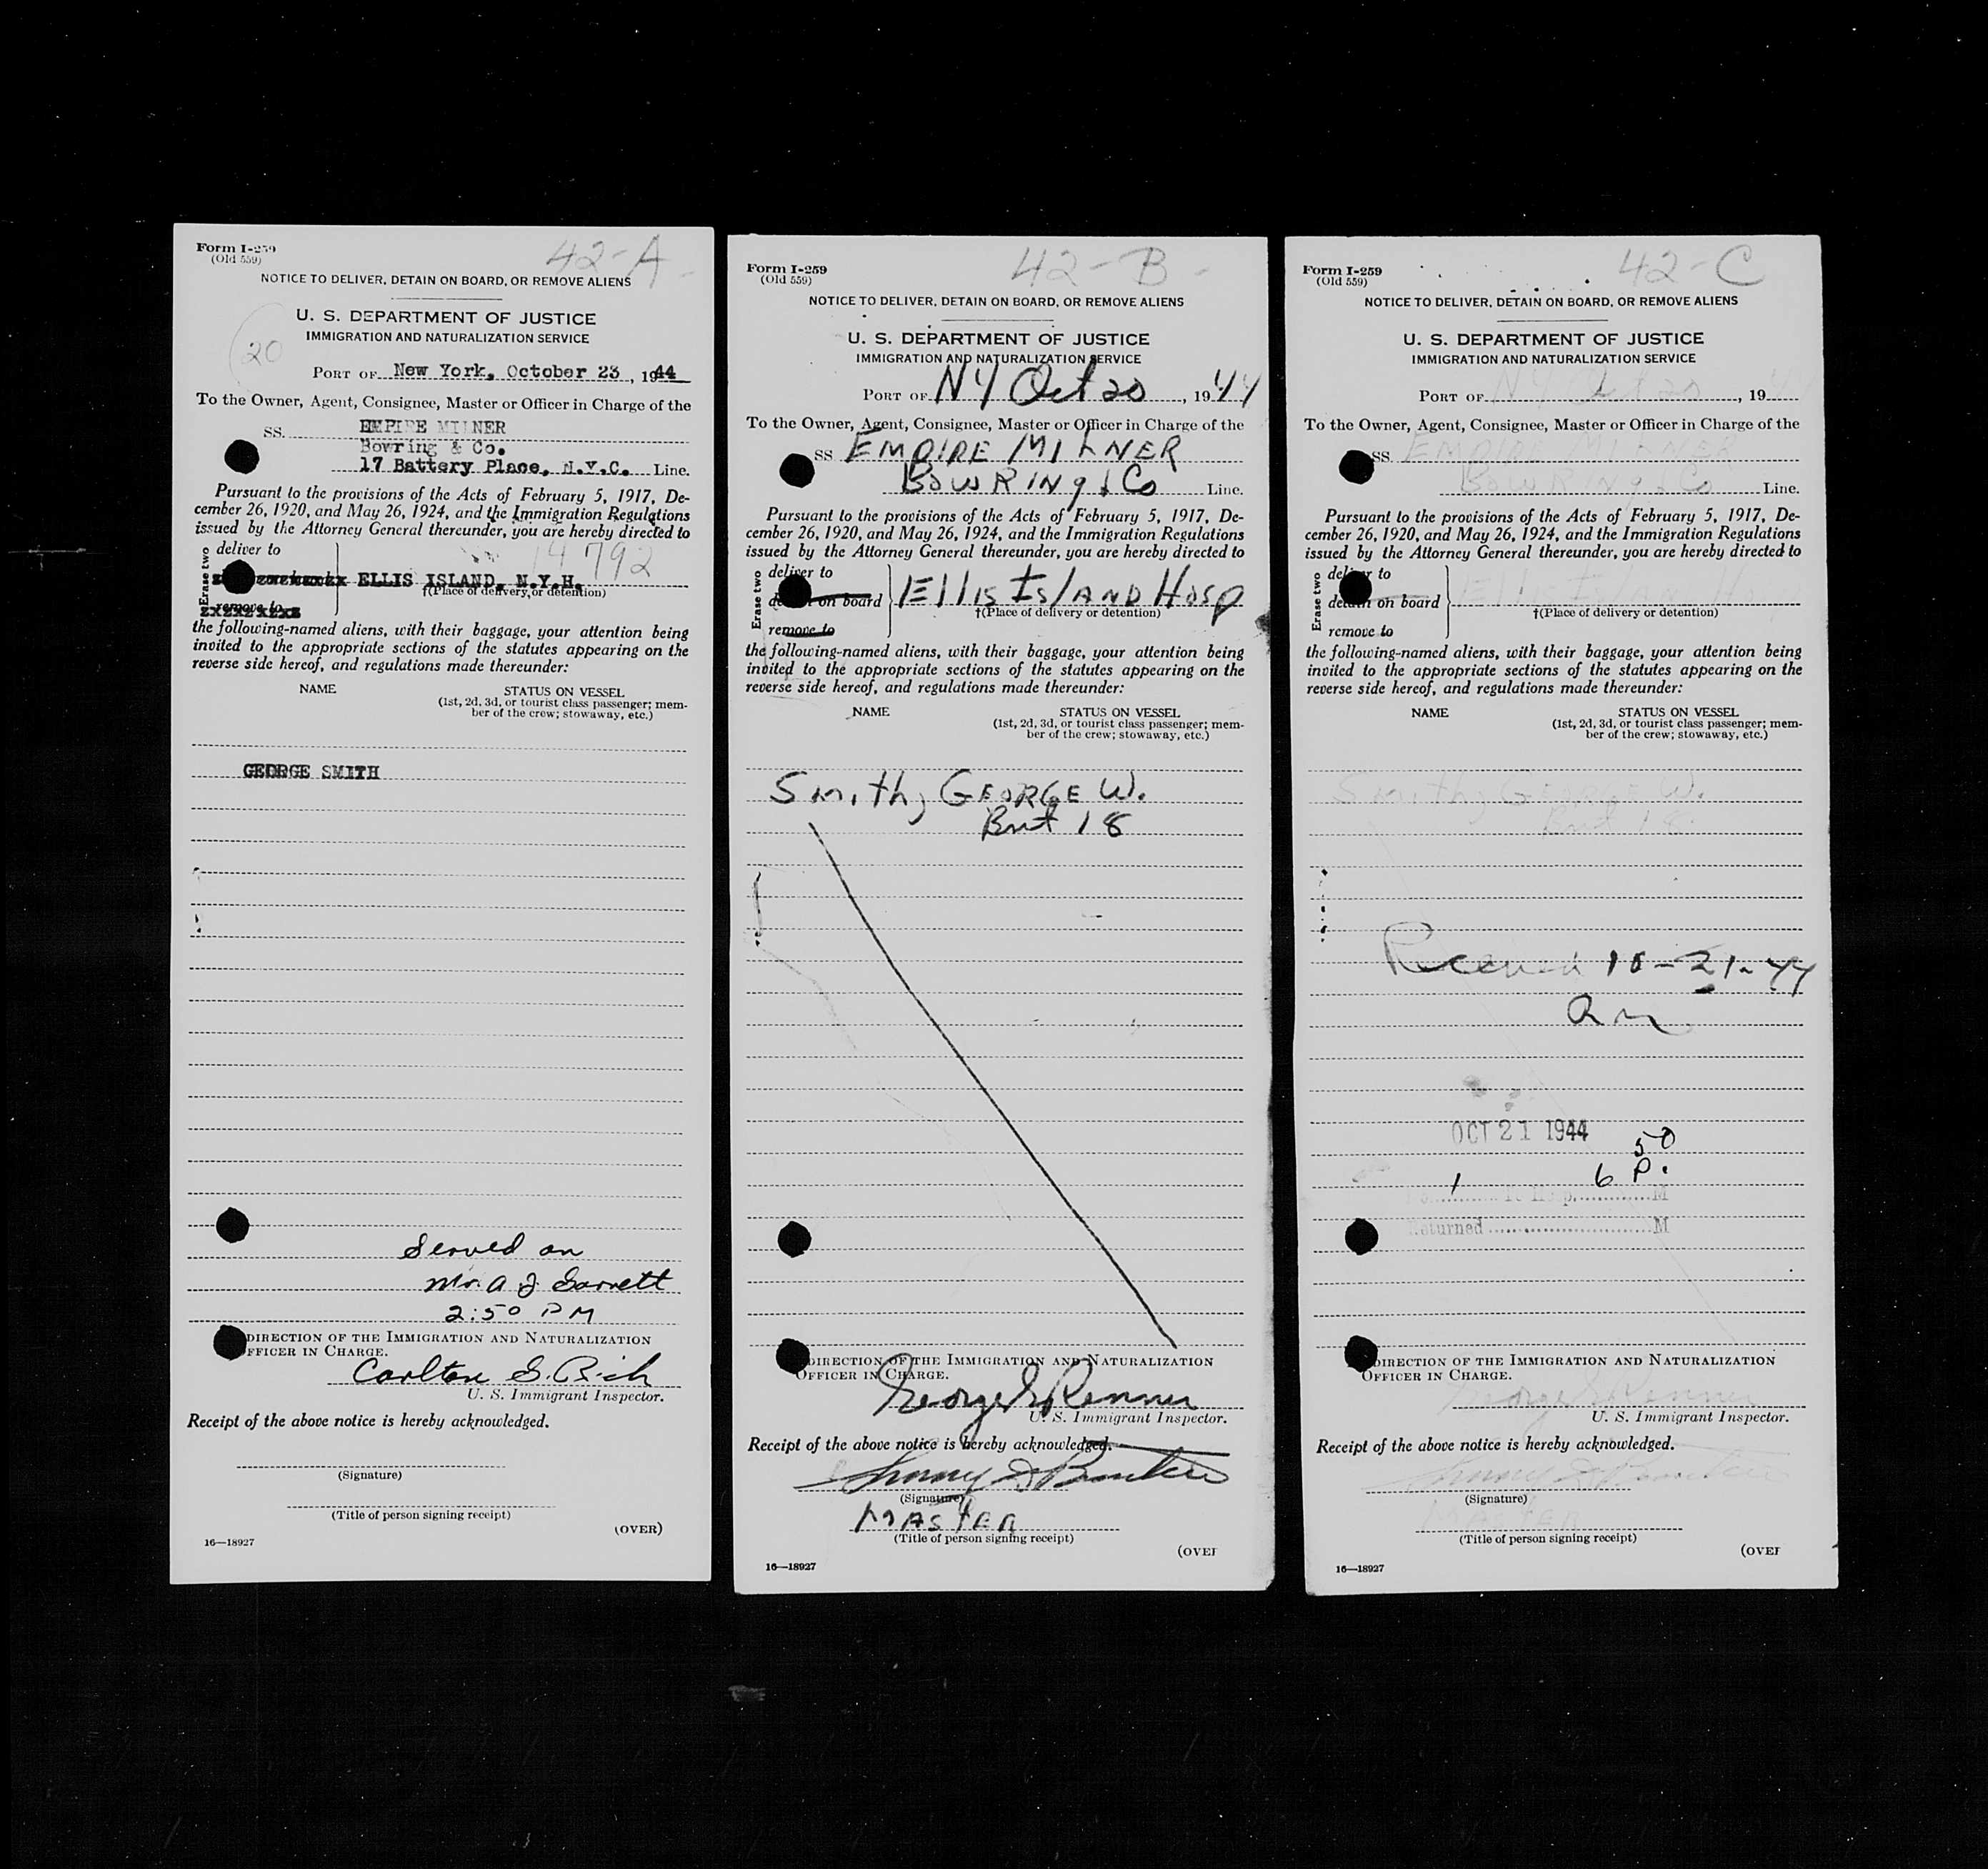 42-A
Form I-259
(Old 559)
NOTICE TO DELIVER, DETAIN ON BOARD, OR REMOVE ALIENS
U. S. DEPARTMENT OF JUSTICE
IMMIGRATION AND NATURALIZATION SERVICE
20
PORT OF New York, October 23, 1944
To the Owner, Agent, Consignee, Master or Officer in Charge of the
SS. EMPIRE MILNER
Bowring & Co.
17 Battery Place, N.Y.C. Line.
Pursuant to the provisions of the Acts of February 5, 1917, De-
cember 26, 1920, and May 26, 1924, and the Immigration Regulations
issued by the Attorney General thereunder, you are hereby directed to
14792
Erase two
deliver to
ELLIS ISLAND, N.Y.H.
†(Place of delivery, or detention)
remove to
the following-named aliens, with their baggage, your attention being
invited to the appropriate sections of the statutes appearing on the
reverse side hereof, and regulations made thereunder:
NAME STATUS ON VESSEL
(1st, 2d, 3d, or tourist class passenger; mem-
ber of the crew; stowaway, etc.)
GEORGE SMITH
Served on
Mr. A J
2:50 PM
DIRECTION OF THE IMMIGRATION AND NATURALIZATION
OFFICER IN CHARGE.
Carlton S. Rich
U. S. Immigrant Inspector.
Receipt of the above notice is hereby acknowledged.
(Signature)
(Title of person signing receipt)
(OVER)
16—18927
42-B
Form I-259
(Old 559)
NOTICE TO DELIVER, DETAIN ON BOARD, OR REMOVE ALIENS
U. S. DEPARTMENT OF JUSTICE
IMMIGRATION AND NATURALIZATION SERVICE
PORT OF NY Oct 20, 1944
To the Owner, Agent, Consignee, Master or Officer in Charge of the
SS. EMPIRE MILNER
BOWRINg & Co Line.
Pursuant to the provisions of the Acts of February 5, 1917, De-
cember 26, 1920, and May 26, 1924, and the Immigration Regulations
issued by the Attorney General thereunder, you are hereby directed to
Erase two
deliver to
detain on board
Ellis IslAND Hosp
†(Place of delivery or detention)
remove to
the following-named aliens, with their baggage, your attention being
invited to the appropriate sections of the statutes appearing on the
reverse side hereof, and regulations made thereunder:
NAME STATUS ON VESSEL
(1st, 2d, 3d, or tourist class passenger; mem-
ber of the crew; stowaway, etc.)
Smith, GEORGE W.
Brit 18
DIRECTION OF THE IMMIGRATION AND NATURALIZATION
OFFICER IN CHARGE.
George S Renner
U. S. Immigrant Inspector.
Receipt of the above notice is hereby acknowledged.
(Signature)
MASTER
(Title of person signing receipt)
(OVER
16—18927
42-C
Form I-259
(Old 559)
NOTICE TO DELIVER, DETAIN ON BOARD, OR REMOVE ALIENS
U. S. DEPARTMENT OF JUSTICE
IMMIGRATION AND NATURALIZATION SERVICE
PORT OF NY Oct 20, 19
To the Owner, Agent, Consignee, Master or Officer in Charge of the
SS. EMPIRE MILNER
BOWRINg & Co Line.
Pursuant to the provisions of the Acts of February 5, 1917, De-
cember 26, 1920, and May 26, 1924, and the Immigration Regulations
issued by the Attorney General thereunder, you are hereby directed to
Erase two
deliver to
detain on board
†(Place of delivery or detention)
remove to
the following-named aliens, with their baggage, your attention being
invited to the appropriate sections of the statutes appearing on the
reverse side hereof, and regulations made thereunder:
NAME STATUS ON VESSEL
(1st, 2d, 3d, or tourist class passenger; mem-
ber of the crew; stowaway, etc.)
Smith, GEORGE W.
Brit 18
Received 10-21-44
OCT 21 1944
1 6 50 P.
To Hosp. M
Returned M
DIRECTION OF THE IMMIGRATION AND NATURALIZATION
OFFICER IN CHARGE.
George S Renner
U. S. Immigrant Inspector.
Receipt of the above notice is hereby acknowledged.
(Signature)
MASTER
(Title of person signing receipt)
(OVER
16—18927